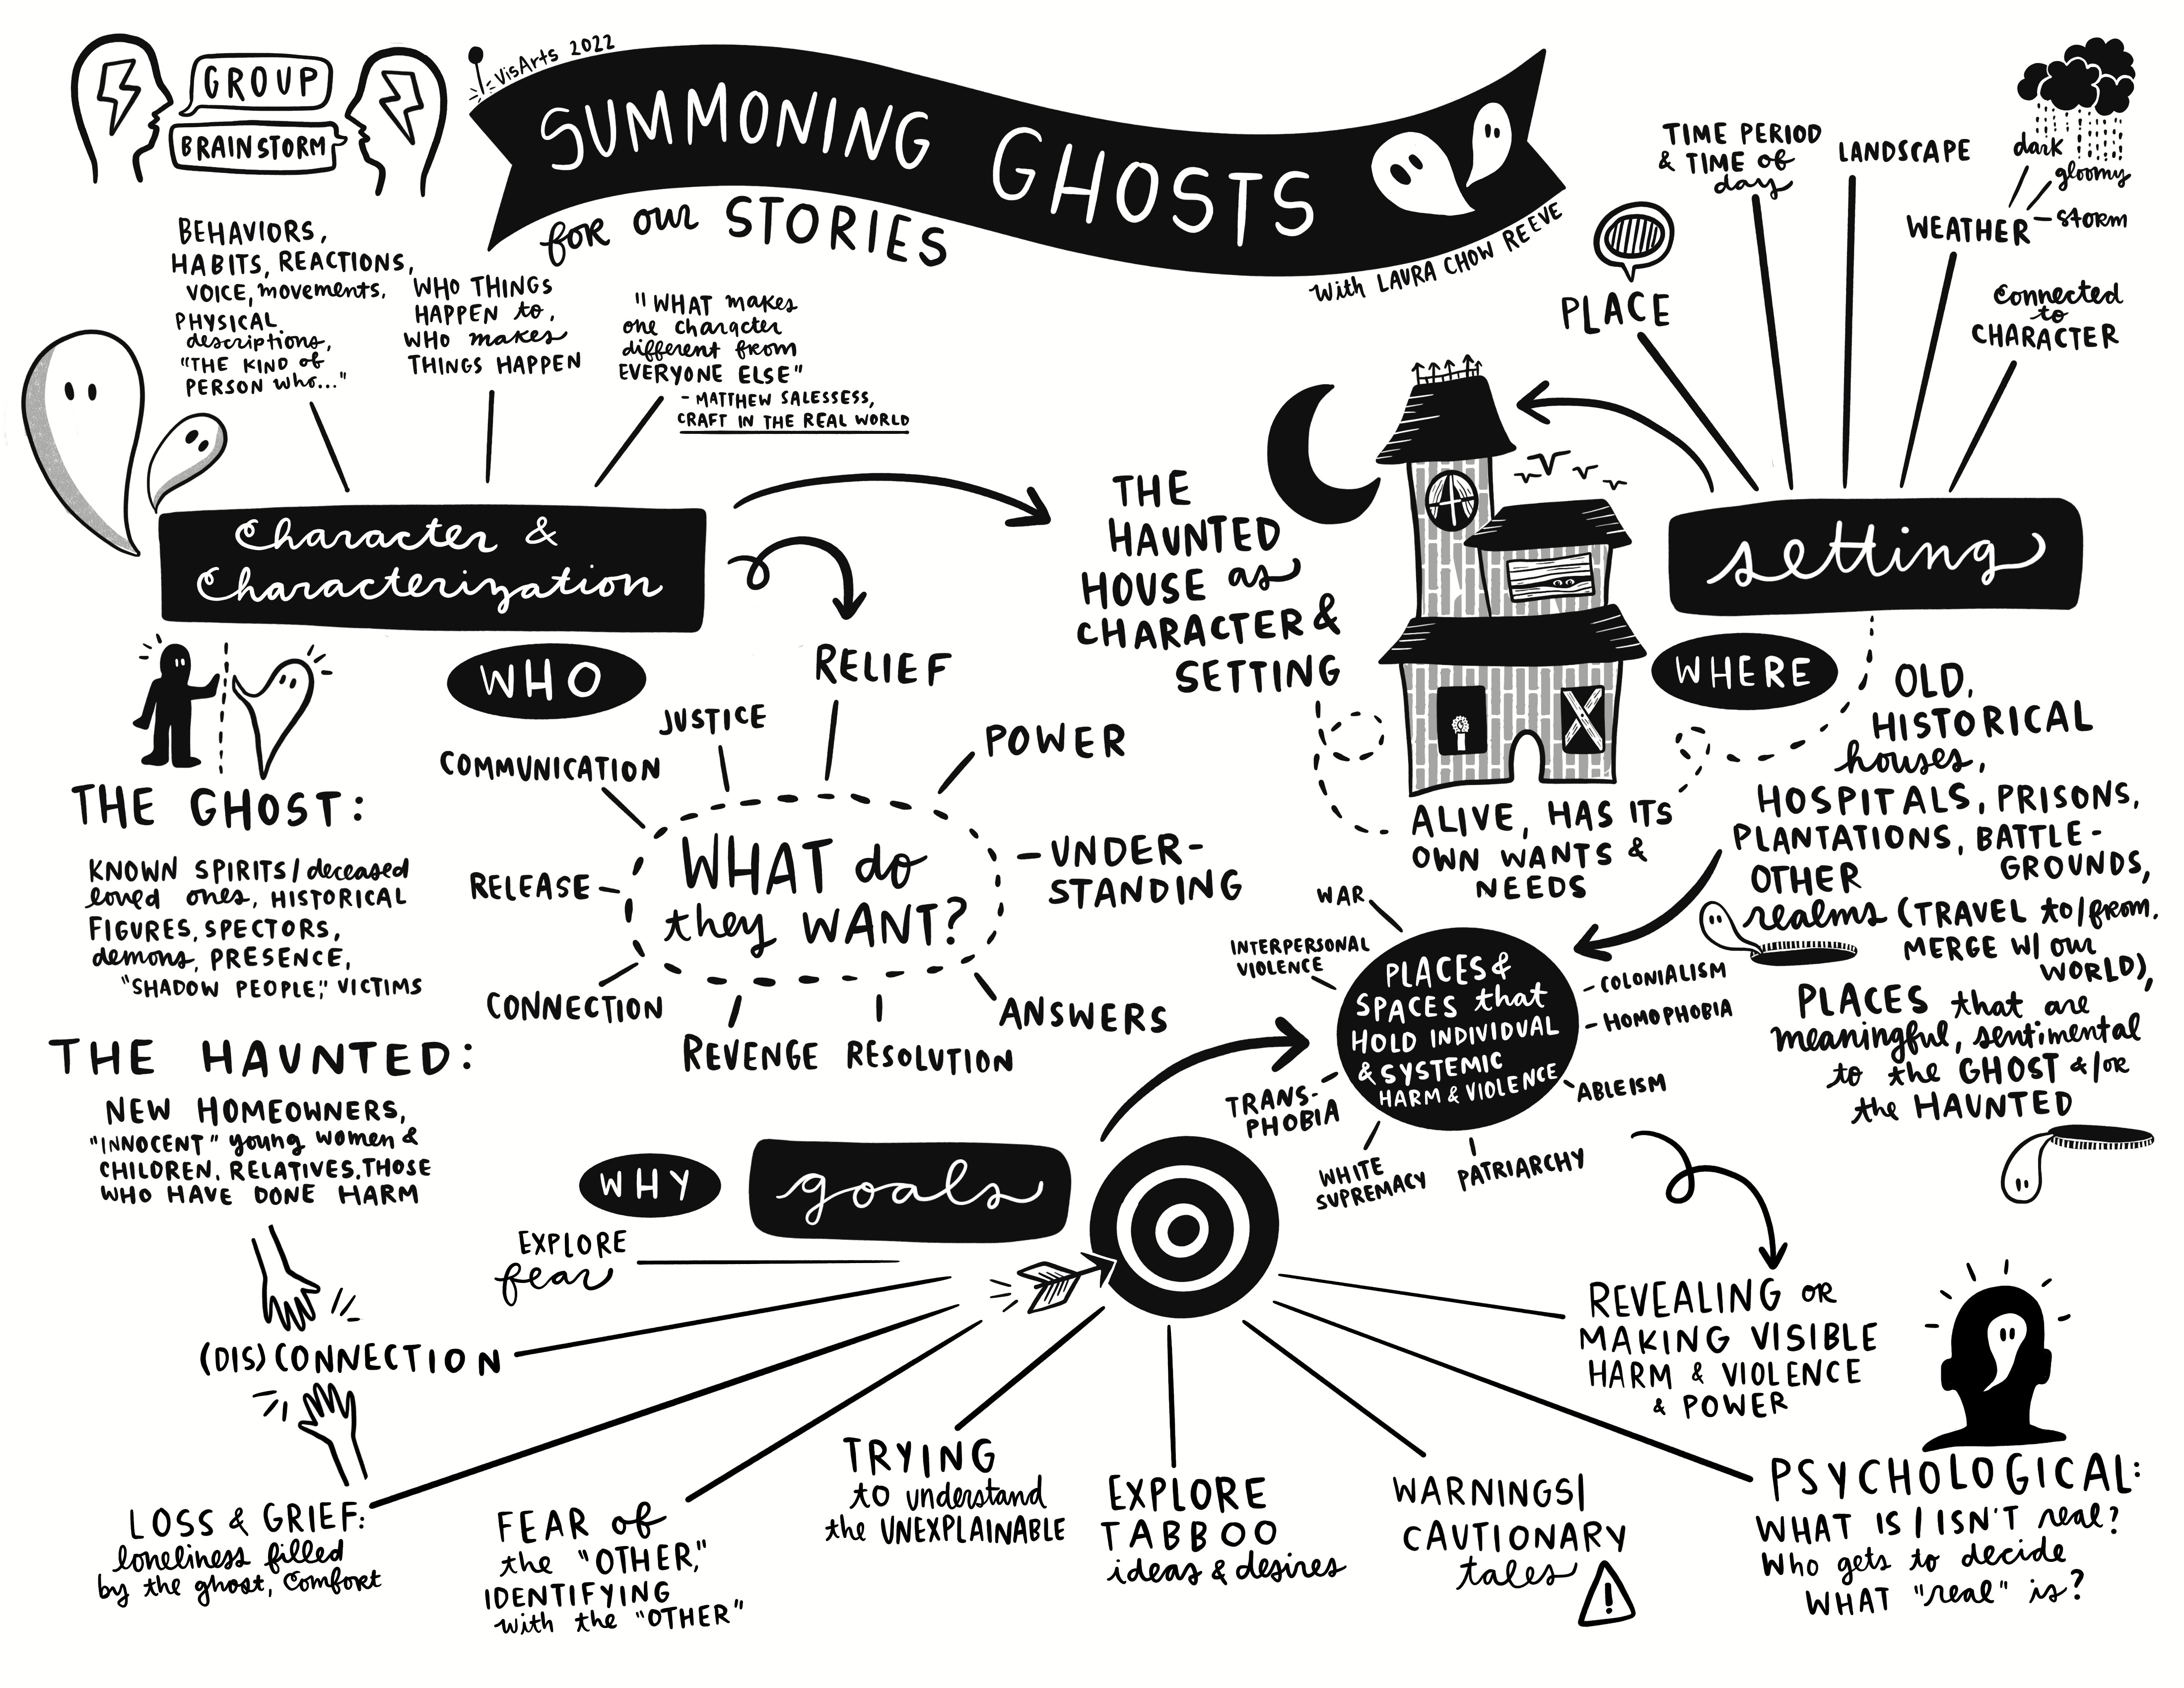 GROUP
BRAINSTORM
VisArts 2022
SUMMONING GHOSTS
for our STORIES
with LAURA CHOW REEVE
BEHAVIORS,
HABITS, REACTIONS,
VOICE, movements,
PHYSICAL
descriptions,
"THE KIND of
PERSON who..."
WHO THINGS
HAPPEN to,
WHO makes
THINGS HAPPEN
"WHAT makes
one character
different from
EVERYONE ELSE"
- MATTHEW SALESSESS,
CRAFT IN THE REAL WORLD
Character &
Characterization
WHO
THE GHOST:
KNOWN SPIRITS/deceased
loved ones, HISTORICAL
FIGURES, SPECTORS,
demons, PRESENCE,
"SHADOW PEOPLE," VICTIMS
THE HAUNTED:
NEW HOMEOWNERS,
"INNOCENT" young women &
CHILDREN, RELATIVES, THOSE
WHO HAVE DONE HARM
WHAT do
they WANT?
COMMUNICATION
JUSTICE
RELIEF
POWER
UNDER-
STANDING
ANSWERS
RESOLUTION
REVENGE
CONNECTION
RELEASE
THE
HAUNTED
HOUSE as
CHARACTER &
SETTING
ALIVE, HAS ITS
OWN WANTS &
NEEDS
PLACE
TIME PERIOD
& TIME of
day
LANDSCAPE
WEATHER
dark
gloomy
storm
Connected
to
CHARACTER
setting
WHERE
OLD,
HISTORICAL
houses,
HOSPITALS, PRISONS,
PLANTATIONS, BATTLE-
GROUNDS,
OTHER
realms (TRAVEL to/from,
MERGE W/ our
WORLD),
PLACES that are
meaningful, sentimental
to the GHOST &/or
the HAUNTED
PLACES &
SPACES that
HOLD INDIVIDUAL
& SYSTEMIC
HARM & VIOLENCE
WAR
INTERPERSONAL
VIOLENCE
COLONIALISM
HOMOPHOBIA
ABLEISM
PATRIARCHY
WHITE
SUPREMACY
TRANS-
PHOBIA
WHY
goals
EXPLORE
fear
(DIS)CONNECTION
LOSS & GRIEF:
loneliness filled
by the ghost, Comfort
FEAR of
the "OTHER,"
IDENTIFYING
with the "OTHER"
TRYING
to understand
the UNEXPLAINABLE
EXPLORE
TABBOO
ideas & desires
WARNINGS/
CAUTIONARY
tales
!
REVEALING or
MAKING VISIBLE
HARM & VIOLENCE
& POWER
PSYCHOLOGICAL:
WHAT IS / ISN'T real?
Who gets to decide
WHAT "real" is?